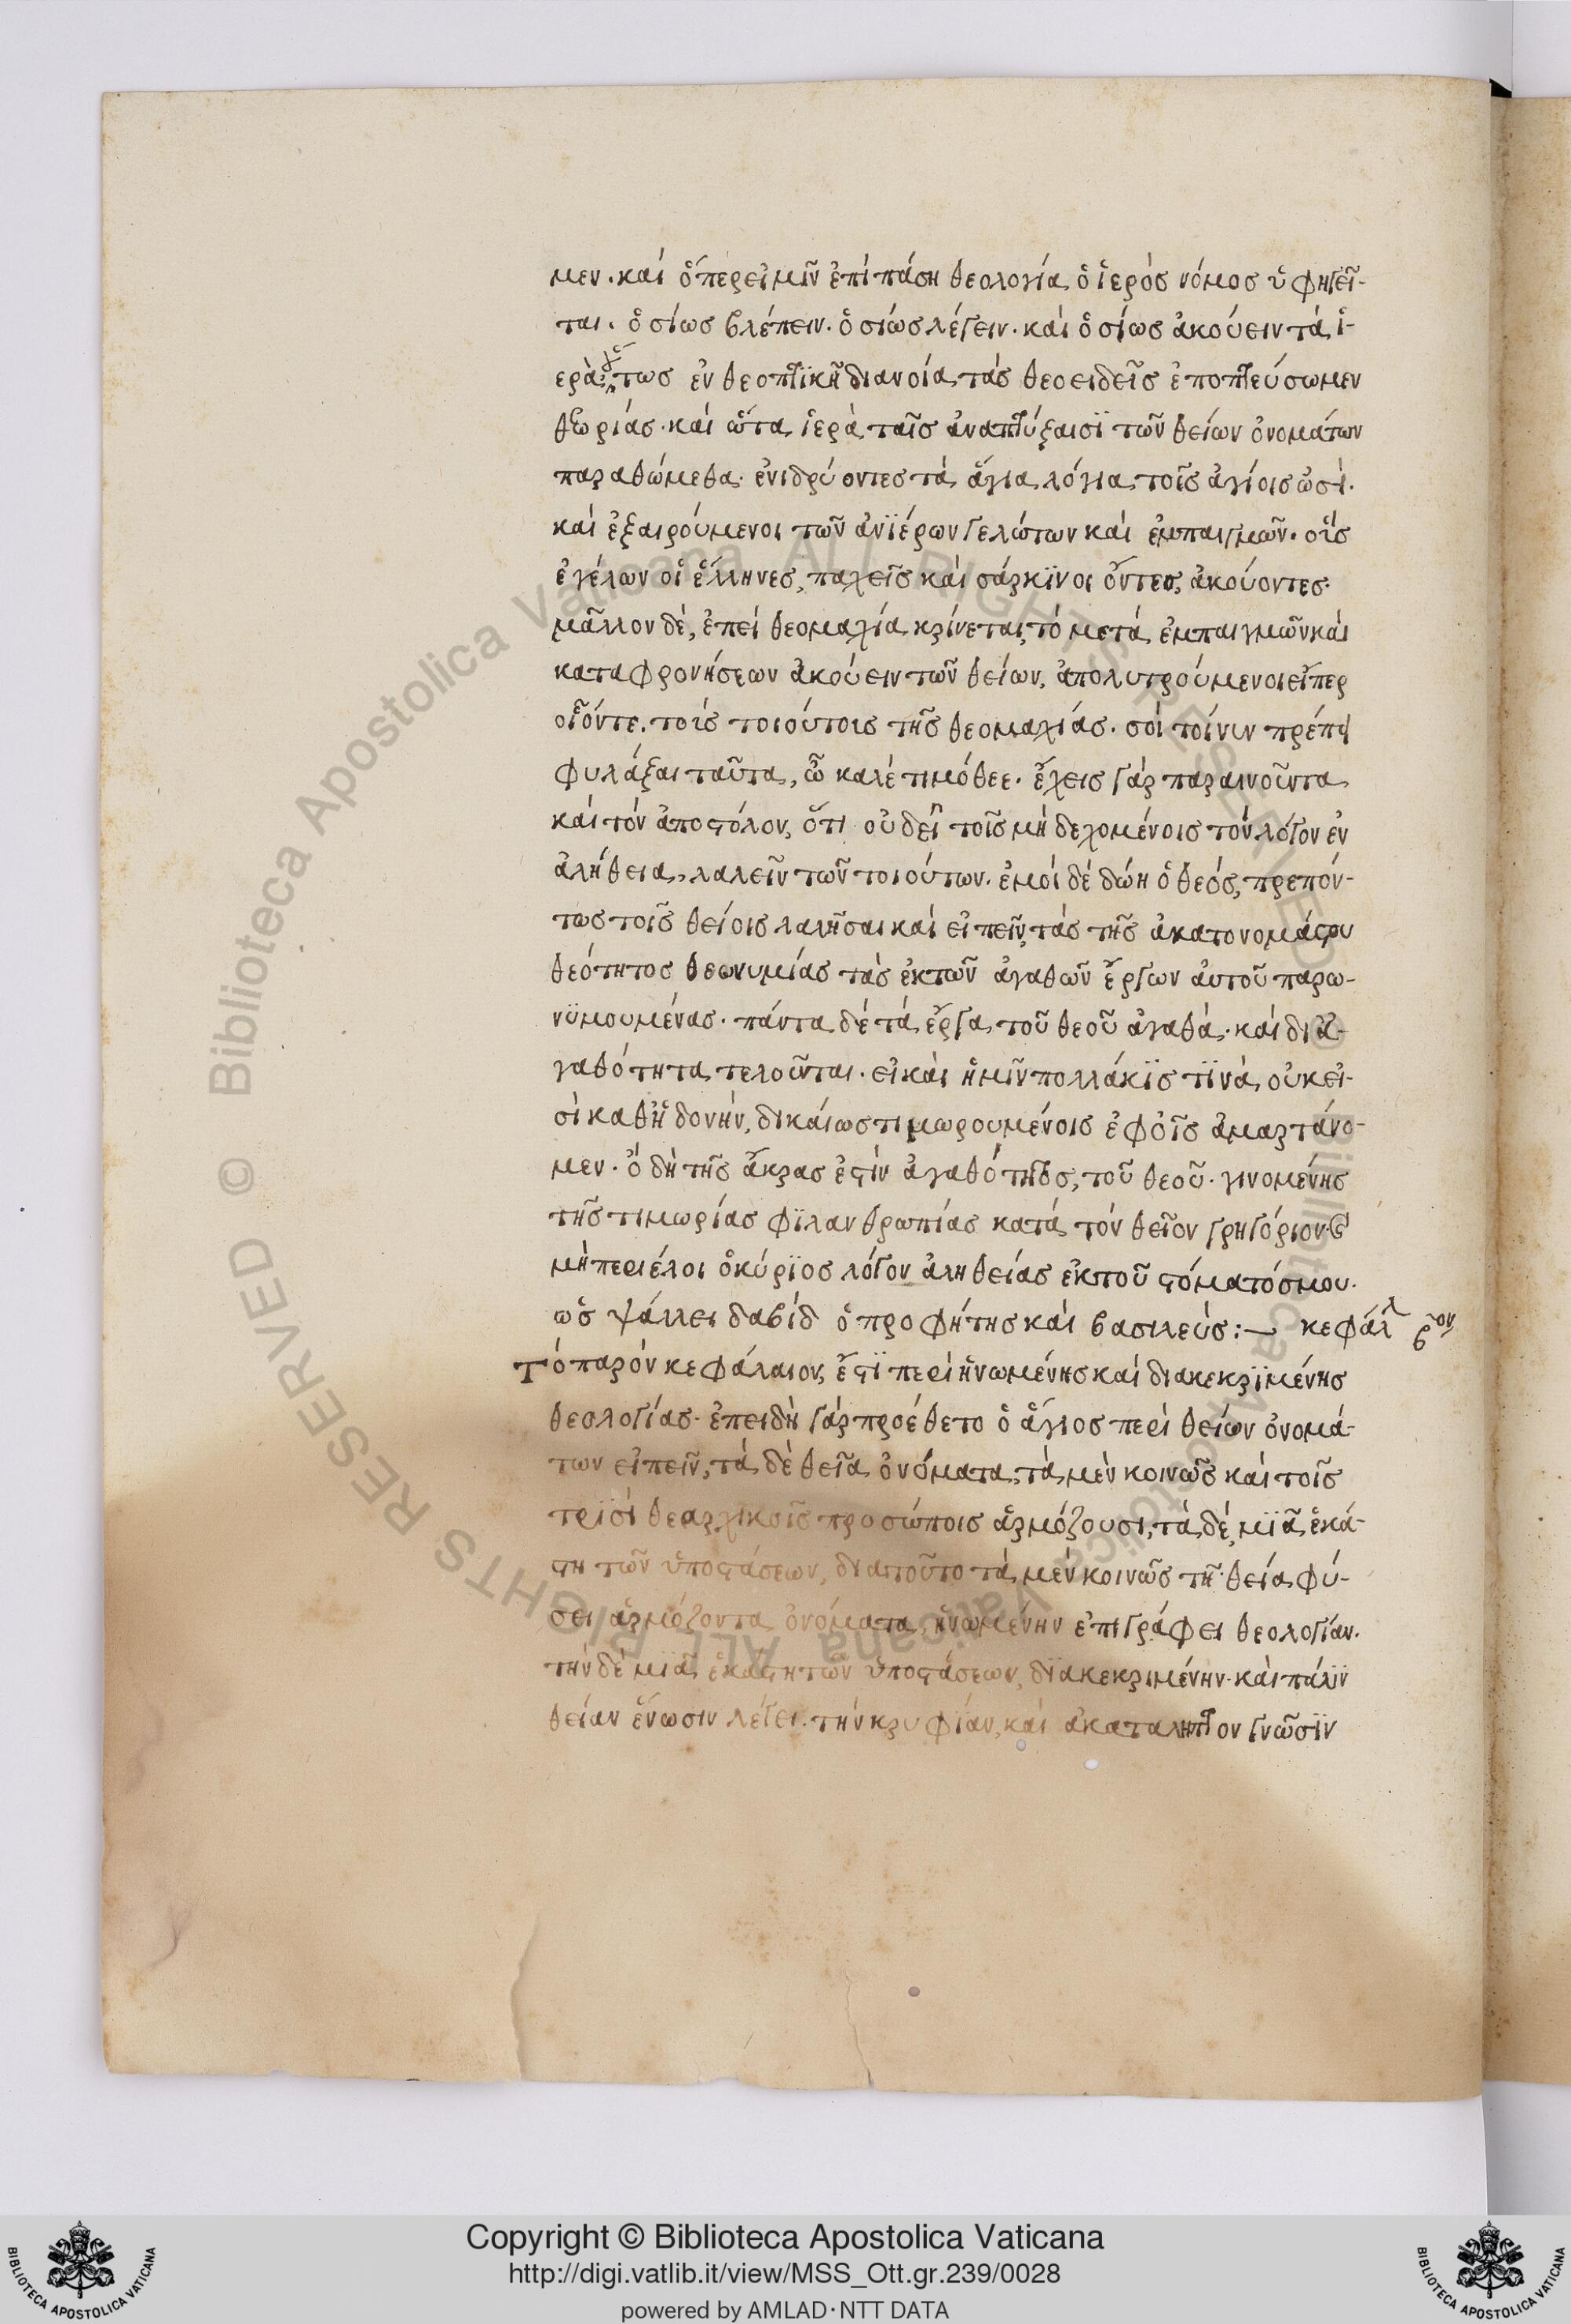 μεν. καὶ ὅπερ εἰμῖν ἐπὶ πάση θεολογία, ὁ ἱερὸς νόμος ὑφηγεῖ-
ται. ὁσίως βλέπειν. ὁσίως λέγειν. καὶ ὁσίως ἀκούειν τὰ, ἱ-
ἐν θεοπτικῆ διανοία, τὰς θεοειδεῖς ἐποπτεύσωμεν
θεωρίας. καὶ ὦτα, ἱερὰ, ταῖς ἀναπτύξαισϊ τῶν θείων ὀνομάτων
παραθώμεθα. ἐνιδρύοντες τὰ, ἅγια, λόγια, τοῖς ἁγίοις ὠσί.
καὶ ἐξαιρούμενοι τῶν ἀνϊέρων γελώτων καὶ ἐμπαιγμῶν. οἷς
ἐγέλων οἱ ἕλληνες, παχεῖς καὶ σάρκϊνοι ὄντες, ἀκούοντες.
μᾶλλον δὲ, ἐπεὶ θεομαχία, κρίνεται, τὸ μετὰ, ἐμπαιγμῶν καὶ
καταφρονήσεων ἀκούειν τῶν θείων, ἀπολυτρούμενοι εἴπερ
οἷόντε, τοὺς τοιούτους τῆς θεομαχίας. σοὶ τοίνυν πρέπει
φυλάξαι ταῦτα, ὦ καλὲ τιμόθεε. ἔχεις γὰρ παραινοῦντα,
καὶ τὸν ἀποστόλον, ὅτι οὐ δεῖ τοῖς μὴ δεχομένοις τὸν λόγον ἐν
ἀλήθεια, λαλεῖν τῶν τοιούτων. ἐμοὶ δὲ δώη ὁ θεὸς, πρεπόν-
τως τοῖς θείοις λαλῆσαι καὶ εἰπεῖν, τὰς τῆς ἀκατονομάστου
θεότητος θεωνυμίας τὰς ἐκ τῶν ἀγαθῶν ἔργων αὐτοῦ παρω-
νϋμουμένας. πάντα, δὲ τὰ, ἔργα, τοῦ θεοῦ ἀγαθά. καὶ δι ἀ-
γαθότητα, τελοῦνται. εἰ καὶ ἡμῖν πολλάκϊς τϊνὰ, οὐκ εἰ-
σὶ καθ' ἡδονὴν, δικαίως τιμωρουμένοις ἐφ' οἷς ἁμαρτάνο-
μεν. ὃ δὴ τῆς ἄκρας ἐστὶν ἀγαθότητος, τοῦ θεοῦ. γινομένης
τῆς τιμωρίας φϊλανθρωπίας κατὰ, τὸν θεῖον γρηγόριον. καὶ
μὴ περιέλοι ὁ κύρϊος λόγον ἀληθείας ἐκ τοῦ στόματός μου.
ὡς ψάλλει δαβὶδ ὁ προφήτης καὶ βασιλεύς:— κεφάλ β΄ον
Τὸ παρὸν κεφάλαιον, ἔστϊ περὶ ἡνωμένης καὶ διακεκρϊμένης
θεολογίας. ἐπειδὴ γὰρ προέθετο ὁ ἅγιος περὶ θείων ὀνομά-
των εἰπεῖν, τὰ, δὲ θεῖα, ὀνόματα, τὰ, μὲν κοινῶς καὶ τοῖς
τρϊσὶ θεαρχικοῖς προσώποις ἁρμόζουσι, τὰ, δὲ, μϊᾶ, ἑκά-
στη τῶν ὑποστάσεων, διατοῦτο τὰ, μὲν κοινῶς τῆ θεία, φύ-
σει ἁρμόζοντα, ὀνόματα, ἡνωμένην ἐπιγράφει θεολογίαν.
τὴν δὲ μϊᾶ, ἑκάστη τῶν ὑποστάσεων, δϊακεκριμένην. καὶ πάλϊν
θείαν ἕνωσιν λέγει. τὴν κρυφίαν, καὶ ἀκατάληπτον γνῶσϊν
Copyright © Biblioteca Apostolica Vaticana
http://digi.vatlib.it/view/MSS_Ott.gr.239/0028
powered by AMLAD·NTT DATA
BIBLIOTECA APOSTOLICA VATICANA
BIBLIOTECA APOSTOLICA VATICANA
© Biblioteca Apostolica Vaticana ALL RIGHTS RESERVED © Biblioteca Apostolica Vaticana ALL RIGHTS RESERVED